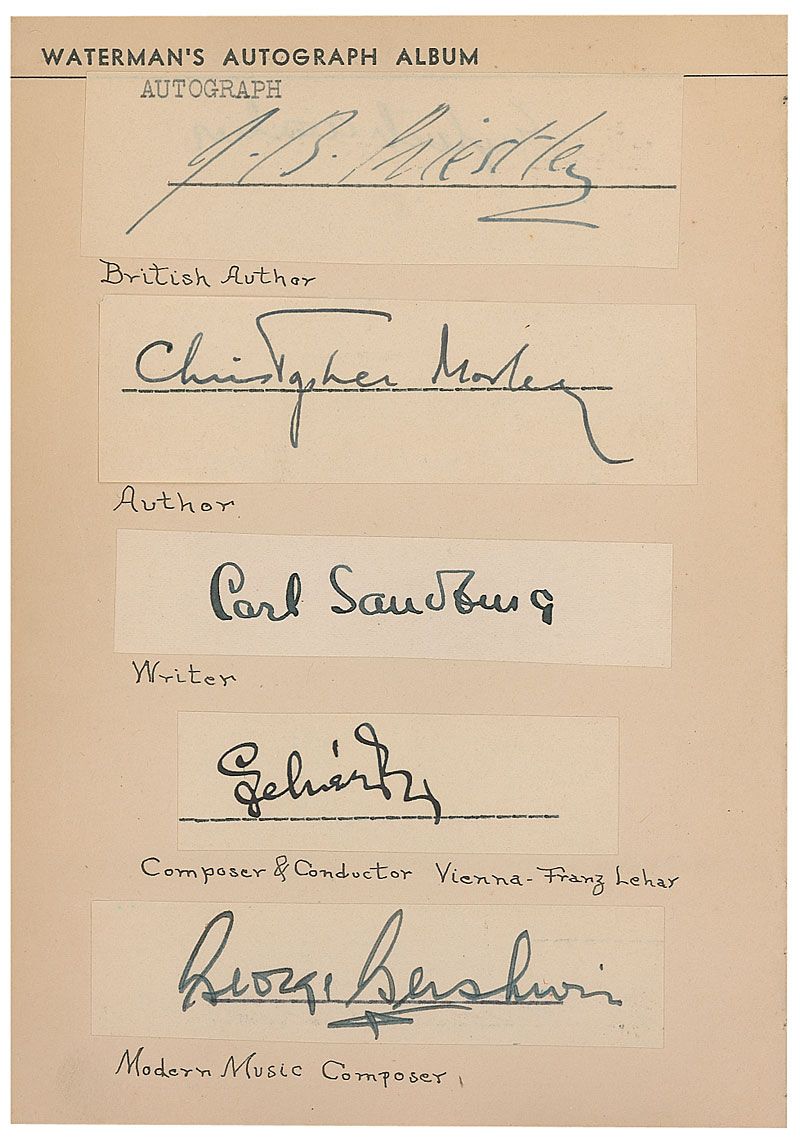 WATERMAN'S AUTOGRAPH ALBUM
AUTOGRAPH
J. B. Priestley
British Author
Christopher Morley
Author
Carl Sandburg
Writer
Lehár Fz
Composer & Conductor Vienna - Franz Lehar
George Gershwin
Modern Music Composer